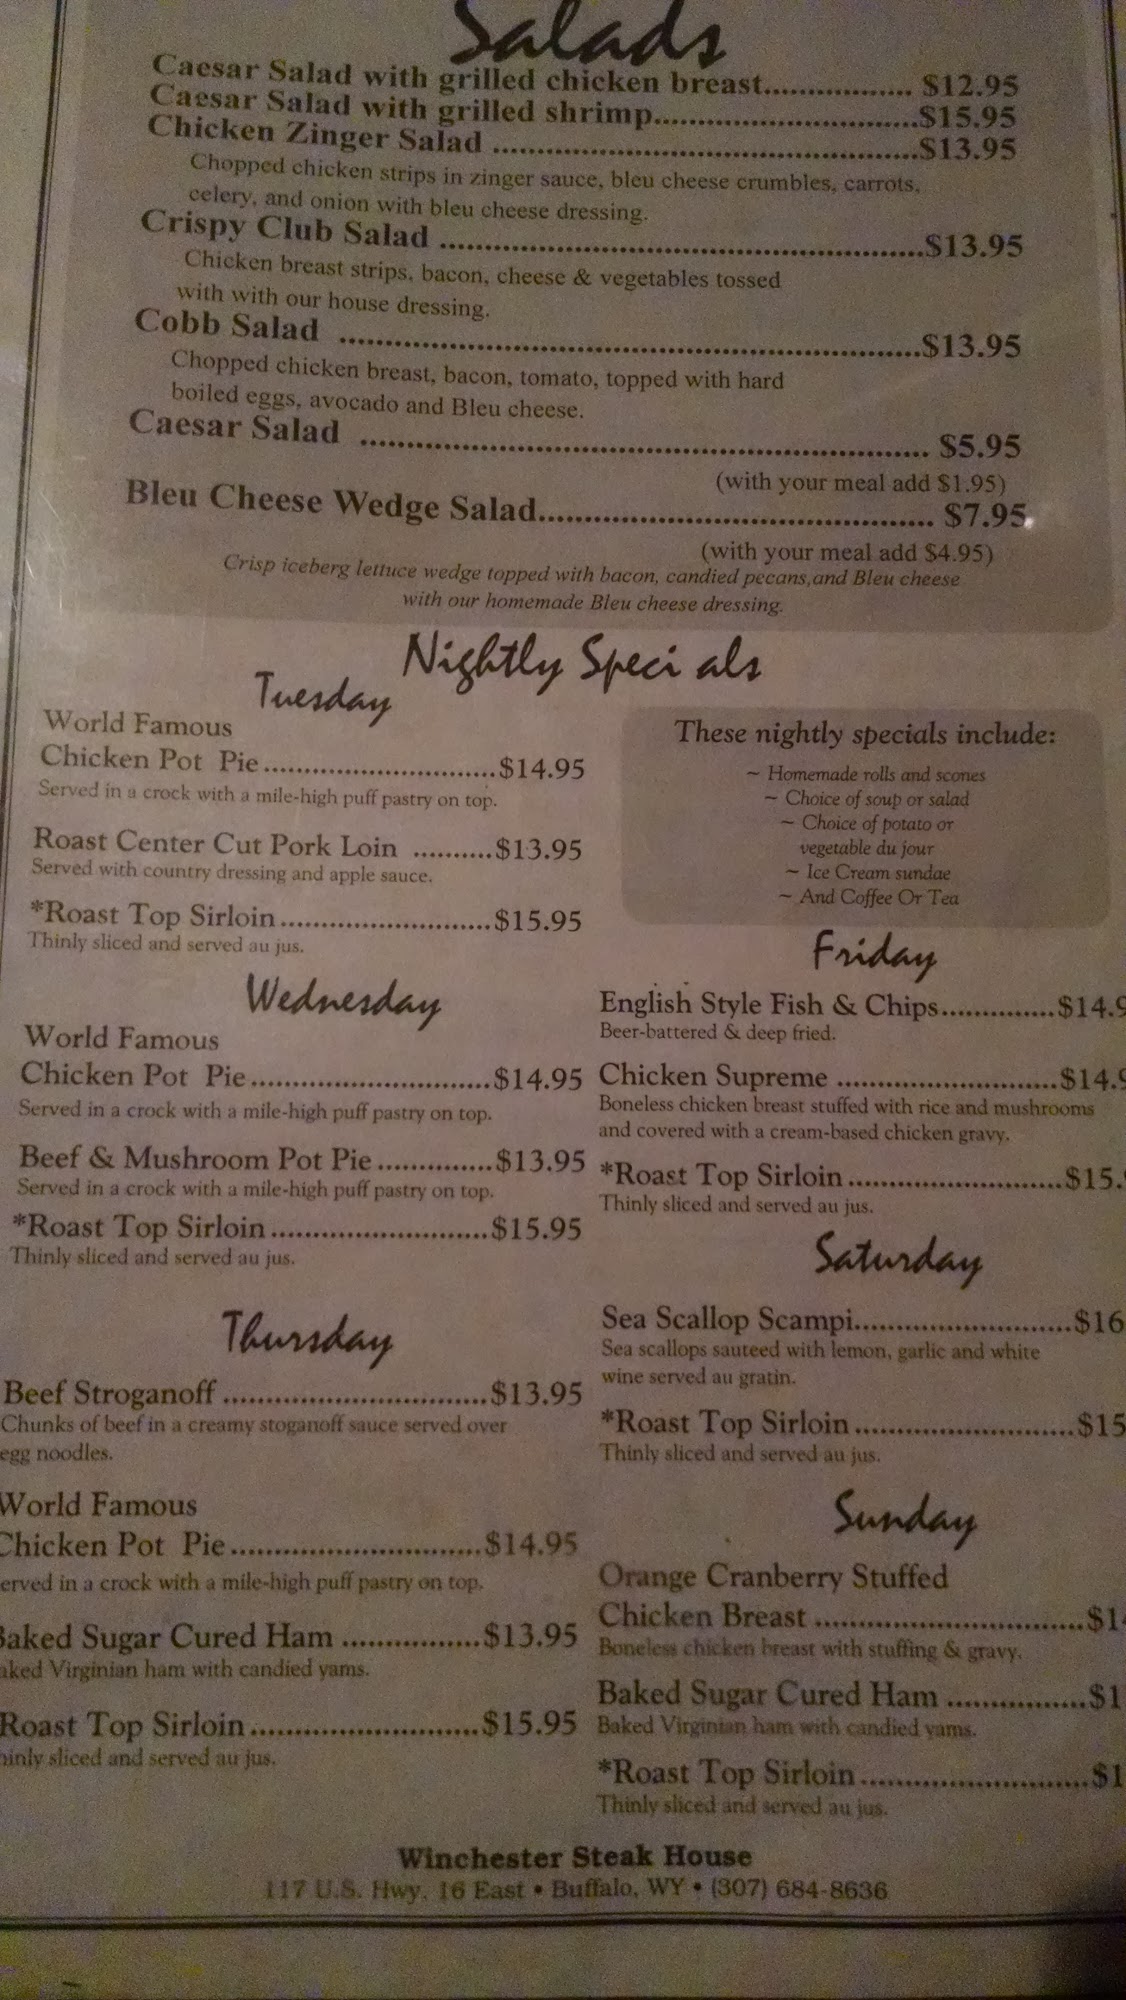 Salads
Caesar Salad with grilled chicken breast................. $12.95
Caesar Salad with grilled shrimp..............................$15.95
Chicken Zinger Salad ................................................$13.95
Chopped chicken strips in zinger sauce, bleu cheese crumbles, carrots,
celery, and onion with bleu cheese dressing.
Crispy Club Salad ......................................................$13.95
Chicken breast strips, bacon, cheese & vegetables tossed
with with our house dressing.
Cobb Salad .................................................................$13.95
Chopped chicken breast, bacon, tomato, topped with hard
boiled eggs, avocado and Bleu cheese.
Caesar Salad ............................................................... $5.95
(with your meal add $1.95)
Bleu Cheese Wedge Salad............................................ $7.95
(with your meal add $4.95)
Crisp iceberg lettuce wedge topped with bacon, candied pecans,and Bleu cheese
with our homemade Bleu cheese dressing.
Nightly Speci als
Tuesday
World Famous
Chicken Pot Pie..............................$14.95
Served in a crock with a mile-high puff pastry on top.
Roast Center Cut Pork Loin ..........$13.95
Served with country dressing and apple sauce.
*Roast Top Sirloin...........................$15.95
Thinly sliced and served au jus.
Wednesday
World Famous
Chicken Pot Pie...............................$14.95
Served in a crock with a mile-high puff pastry on top.
Beef & Mushroom Pot Pie...............$13.95
Served in a crock with a mile-high puff pastry on top.
*Roast Top Sirloin............................$15.95
Thinly sliced and served au jus.
Thursday
Beef Stroganoff ..................................$13.95
Chunks of beef in a creamy stoganoff sauce served over
egg noodles.
World Famous
Chicken Pot Pie................................$14.95
erved in a crock with a mile-high puff pastry on top.
Baked Sugar Cured Ham .................$13.95
aked Virginian ham with candied yams.
Roast Top Sirloin.............................$15.95
inly sliced and served au jus.
These nightly specials include:
~ Homemade rolls and scones
~ Choice of soup or salad
~ Choice of potato or
vegetable du jour
~ Ice Cream sundae
~ And Coffee Or Tea
Friday
English Style Fish & Chips..............$14.9
Beer-battered & deep fried.
Chicken Supreme ............................$14.9
Boneless chicken breast stuffed with rice and mushrooms
and covered with a cream-based chicken gravy.
*Roast Top Sirloin...........................$15.
Thinly sliced and served au jus.
Saturday
Sea Scallop Scampi............................$16
Sea scallops sauteed with lemon, garlic and white
wine served au gratin.
*Roast Top Sirloin............................$15
Thinly sliced and served au jus.
Sunday
Orange Cranberry Stuffed
Chicken Breast ..................................$1
Boneless chicken breast with stuffing & gravy.
Baked Sugar Cured Ham .................$1
Baked Virginian ham with candied yams.
*Roast Top Sirloin.............................$1
Thinly sliced and served au jus.
Winchester Steak House
117 U.S. Hwy. 16 East • Buffalo, WY • (307) 684-8636